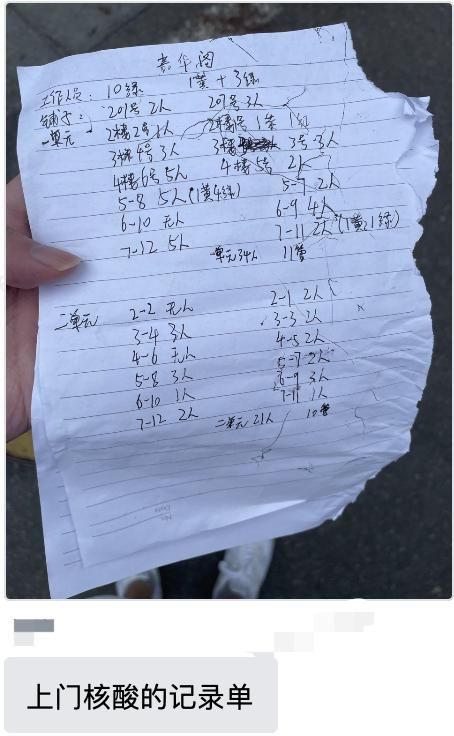 嘉华阁
工作人员: 10绿 1黄+3绿
铺子: 201号 2人 209号 3人
一单元 2楼2号 1人 2楼1号 1人
3楼4号 3人 3楼 3号 3人
4楼6号 5人 4楼5号 2人
5-8 5人(1黄4绿) 5-7 2人
6-10 无人 6-9 4人
7-12 5人 7-11 2人(1黄1绿)
一单元34人 11管
二单元 2-2 无人 2-1 2人
3-4 3人 3-3 2人
4-6 无人 4-5 2人
5-8 3人 5-7 2人
6-10 1人 6-9 3人
7-12 2人 7-11 1人
二单元21人 10管
上门核酸的记录单